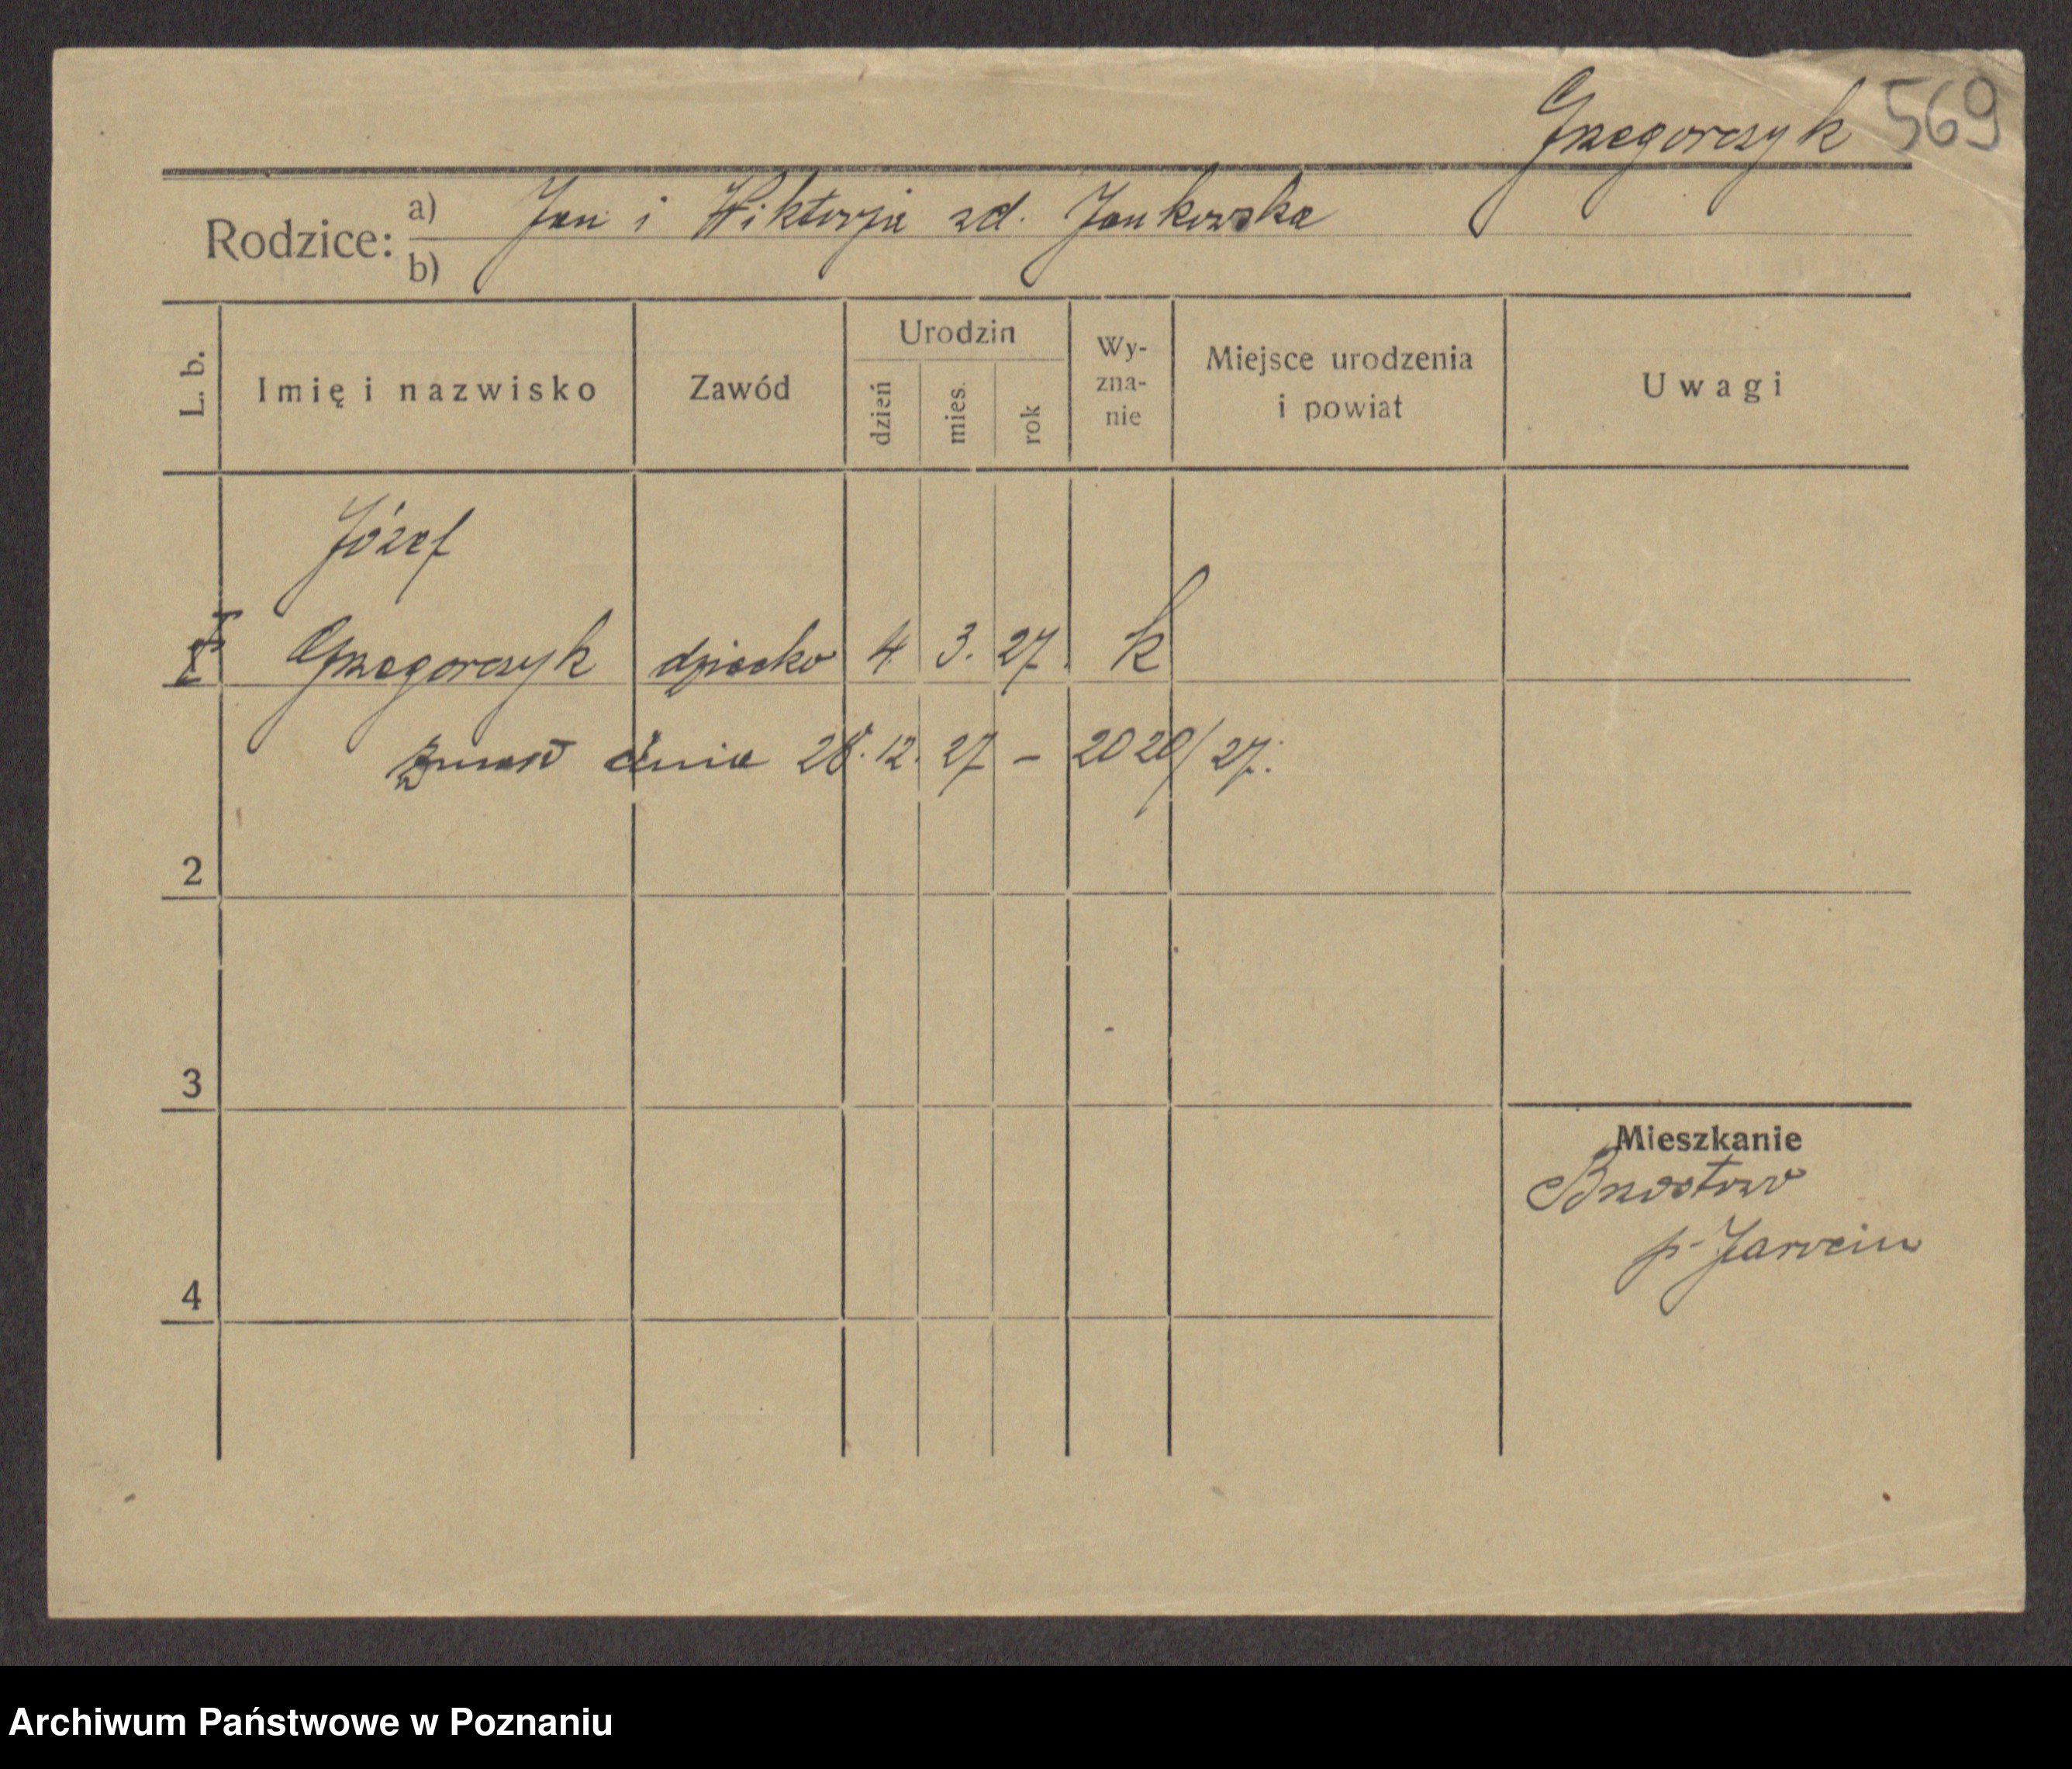 Grzegorczyk 569
Rodzice: a) Jan i Wiktorja zd. Jankowska
b)
L. b. Imię i nazwisko Zawód Urodzin dzień mies. rok Wy-zna-nie Miejsce urodzenia i powiat Uwagi
Józef
Grzegorczyk dziecko 4. 3. 27. k
zmarł dnia 28. 12. 27 – 2020/27.
2
3
Mieszkanie
Brzostowo
p. Jarocin
4
Archiwum Państwowe w Poznaniu